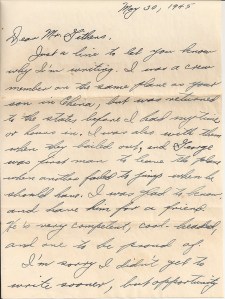 May 30, 1945
Dear Mr. Githens,
Just a line to let you know
why I'm writing. I was a crew
member on the same plane as your
son in China, but was returned
to the states before I had my time
or hours in. I was also with them
when they bailed out, and George
was first man to leave the plane
when another failed to jump when he
should have. I was glad to know
and have him for a friend.
He is very competent, cool-headed,
and one to be proud of.
I'm sorry I didn't get to
write sooner, but opportunity